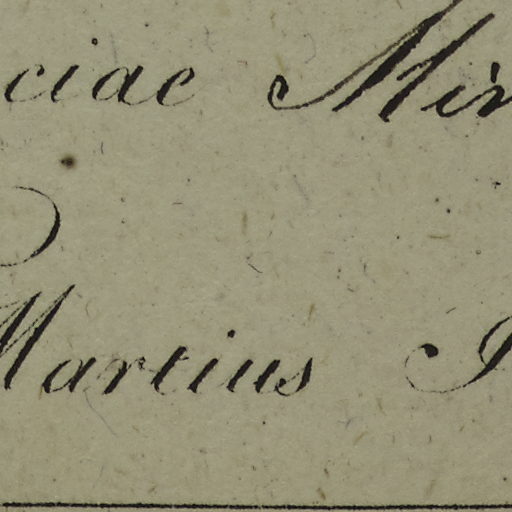 ciae Min
Martius